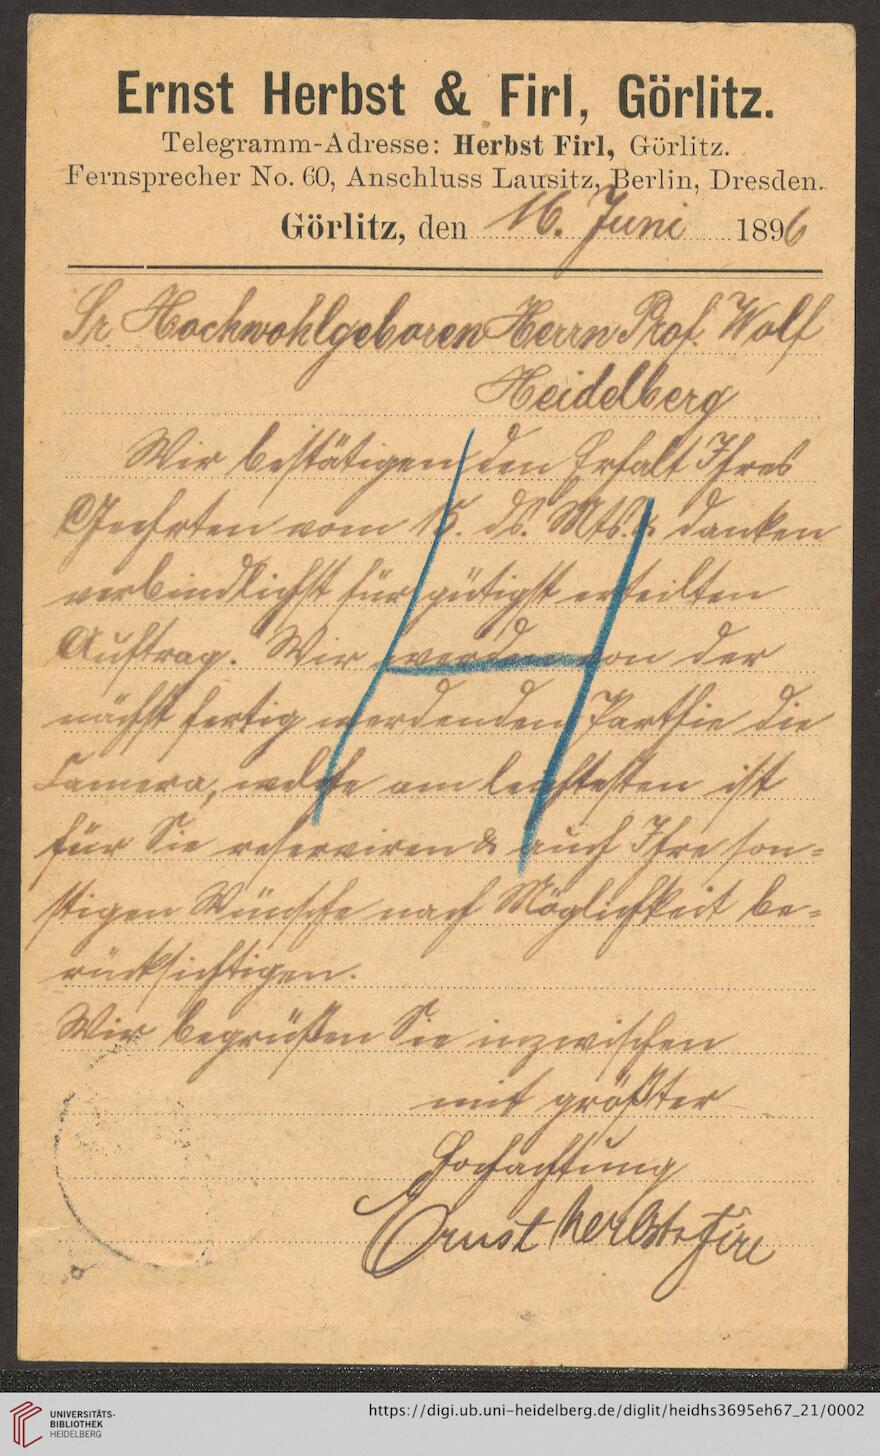 Ernst Herbst & Firl, Görlitz.
Telegramm-Adresse: Herbst Firl, Görlitz.
Fernsprecher No. 60, Anschluss Lausitz, Berlin, Dresden.
Görlitz, den 16. Juni 1896
Sr. Hochwohlgeboren Herrn Prof. Wolf
Heidelberg
Wir bestätigen den Erhalt Ihres
Geehrten vom 15. ds. Mts. & danken
verbindlichst für gütigst erteilten
Auftrag. Wir werden von der
nächst fertig werdenden Parthie die
Camera, welche am leichtesten ist
für Sie reserviren & auch Ihre son=
stigen Wünsche nach Möglichkeit be=
rücksichtigen.
Wir begrüßen Sie inzwischen
mit größter
Hochachtung
Ernst Herbst & Firl
H
UNIVERSITÄTS-
BIBLIOTHEK
HEIDELBERG
https://digi.ub.uni-heidelberg.de/diglit/heidhs3695eh67_21/0002